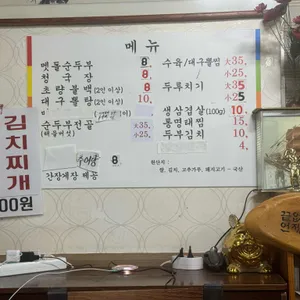 메 뉴
맷돌순두부 8,
청국장 8,
초당볼백 (2인 이상) 8,
대구뽈탕 (2인 이상) 10,
순두부전골 大35,
(해물버섯) 小25,
추어탕 8
간장게장 제공
수육/대구뽈찜 大35,
小25,
두루치기 大35
小25
생삼겹살 (100g) 10
통명태찜 15,
두부김치 10,
4,
원산지 :
쌀, 김치, 고추가루, 돼지고기 - 국산
김치찌개
00원